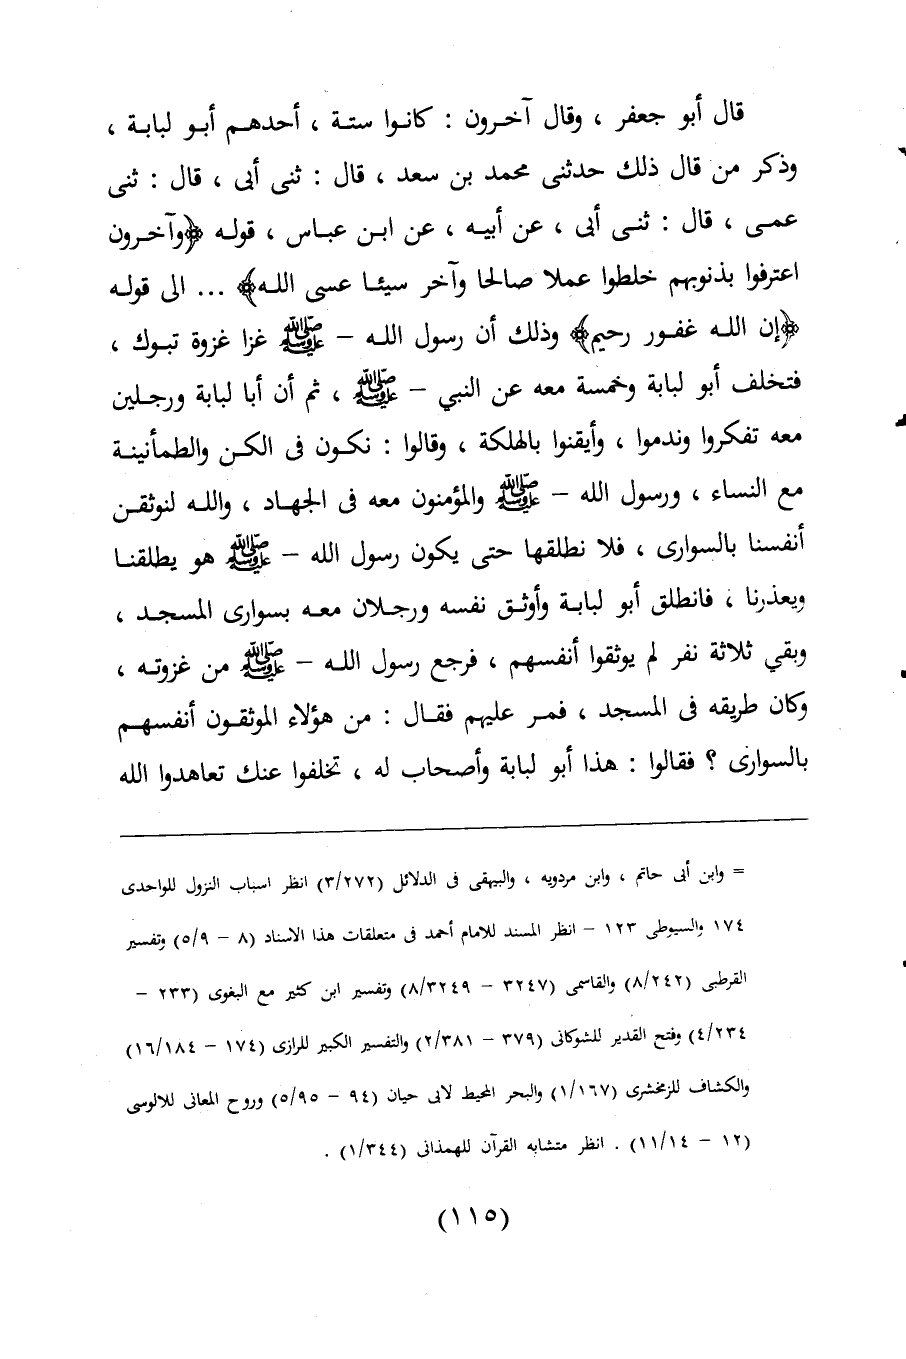 قال أبو جعفر ، وقال آخرون : كانوا ستة ، أحدهم أبو لبابة ،
وذكر من قال ذلك حدثنى محمد بن سعد ، قال : ثنى أبى ، قال : ثنى
عمى ، قال : ثنى أبى ، عن أبيه ، عن ابن عباس ، قوله ﴿وآخرون
اعترفوا بذنوبهم خلطوا عملا صالحا وآخر سيئا عسى الله﴾ ... الى قوله
﴿إن الله غفور رحيم﴾ وذلك أن رسول الله – ﷺ غزا غزوة تبوك ،
فتخلف أبو لبابة وخمسة معه عن النبي – ﷺ ، ثم أن أبا لبابة ورجلين
معه تفكروا وندموا ، وأيقنوا بالهلكة ، وقالوا : نكون فى الكن والطمأنينة
مع النساء ، ورسول الله – ﷺ والمؤمنون معه فى الجهاد ، والله لنوثقن
أنفسنا بالسوارى ، فلا نطلقها حتى يكون رسول الله – ﷺ هو يطلقنا
ويعذرنا ، فانطلق أبو لبابة وأوثق نفسه ورجلان معه بسوارى المسجد ،
وبقي ثلاثة نفر لم يوثقوا أنفسهم ، فرجع رسول الله – ﷺ من غزوته ،
وكان طريقه فى المسجد ، فمر عليهم فقال : من هؤلاء الموثقون أنفسهم
بالسوارى ؟ فقالوا : هذا أبو لبابة وأصحاب له ، تخلفوا عنك تعاهدوا الله
= وابن أبى حاتم ، وابن مردويه ، والبيهقى فى الدلائل (٣/٢٧٢) انظر اسباب النزول للواحدى
١٧٤ والسيوطى ١٢٣ – انظر المسند للامام أحمد فى متعلقات هذا الاسناد (٨ – ٥/٩) وتفسير
القرطبى (٨/٢٤٢) والقاسمى (٣٢٤٧ – ٨/٣٢٤٩) وتفسير ابن كثير مع البغوى (٢٣٣ –
٤/٢٣٤) وفتح القدير للشوكانى (٣٧٩ – ٢/٣٨١) والتفسير الكبير للرازى (١٧٤ – ١٦/١٨٤)
والكشاف للزمخشرى (١/١٦٧) والبحر المحيط لابى حيان (٩٤ – ٥/٩٥) وروح المعانى للالوسى
(١٢ – ١١/١٤) . انظر متشابه القرآن للهمذانى (١/٣٤٤) .
(١١٥)